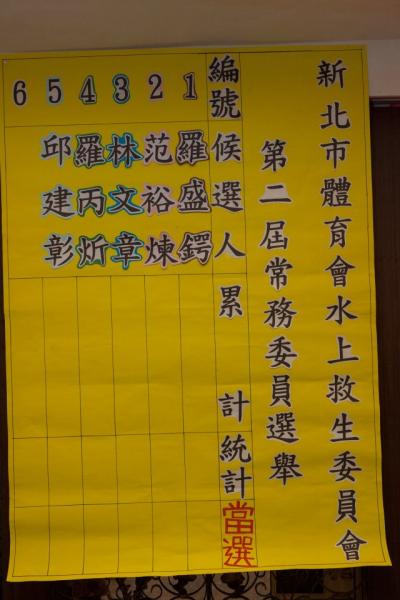 新北市體育會水上救生委員會
第二屆常務委員選舉
編號 候選人 累計 統計 當選
1 羅盛鍔
2 范裕煉
3 林文章
4 羅丙炘
5 邱建彰
6